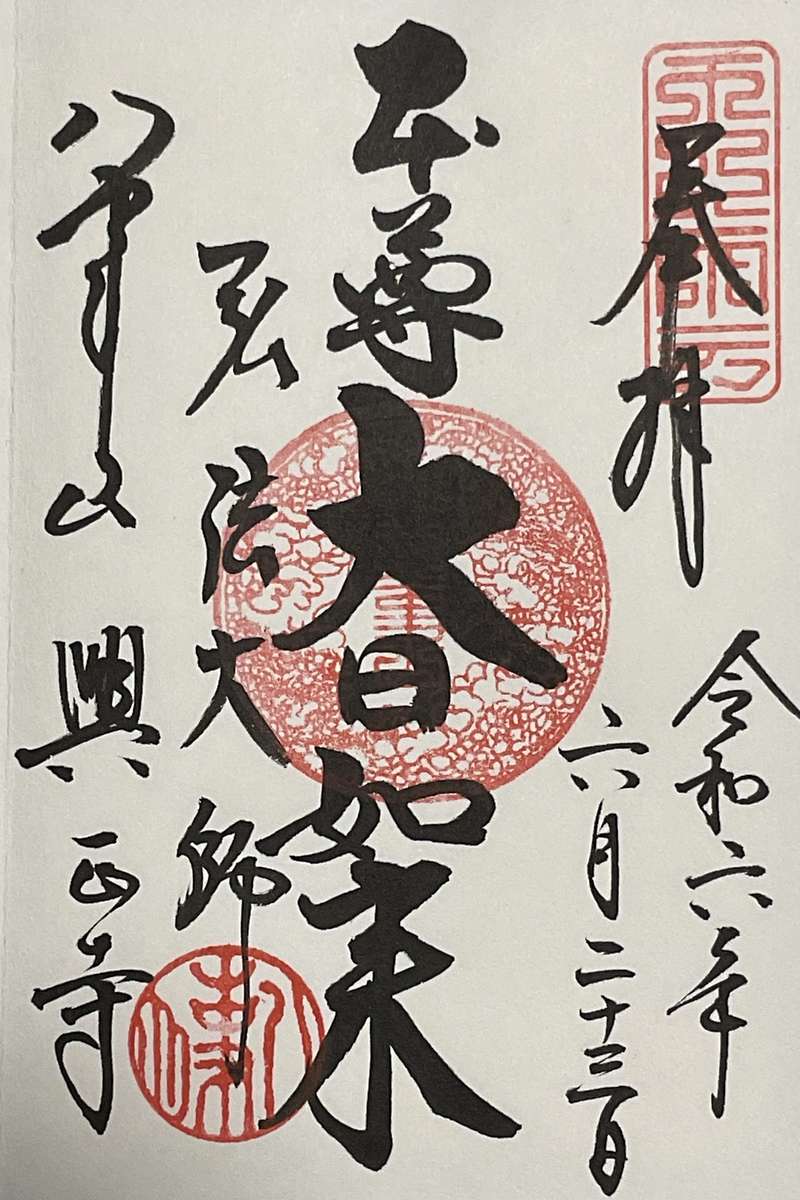 奉拝
令和六年
六月二十三日
本尊
大日如来
弘法大師
八事山
興正寺